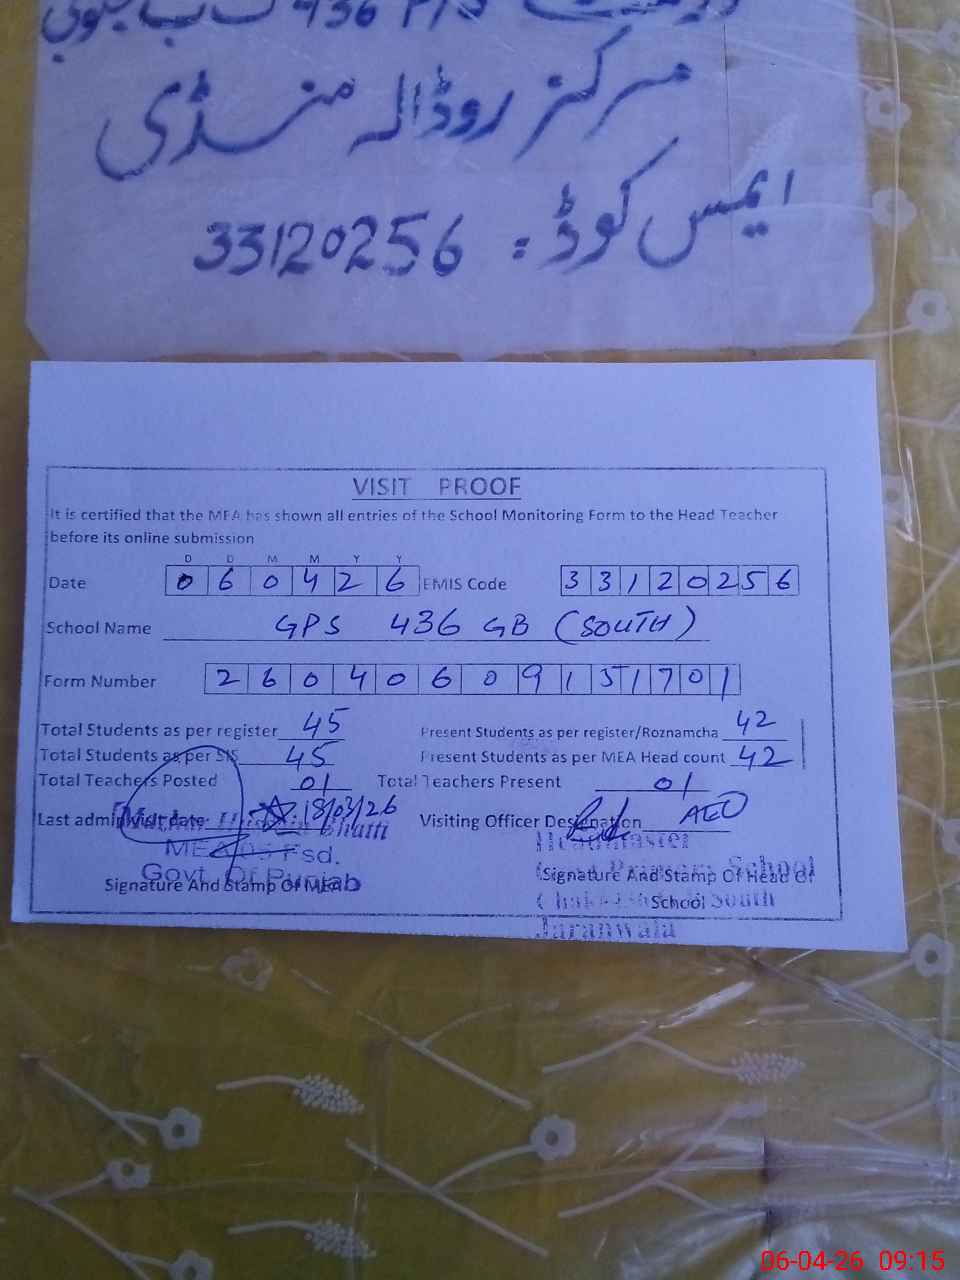 436
مرکز روڈالہ منڈی
ایمس کوڈ: 33120256
VISIT PROOF
It is certified that the MEA has shown all entries of the School Monitoring Form to the Head Teacher
before its online submission
D D M M Y Y
Date 060426 EMIS Code 33120256
School Name GPS 436 GB (SOUTH)
Form Number 26040609151701
Total Students as per register 45 Present Students as per register/Roznamcha 42
Total Students as per SIS 45 Present Students as per MEA Head count 42
Total Teachers Posted 01 Total Teachers Present 01
Last admin visit date: 18/03/26 Visiting Officer Designation AEO
Bhatti Headmaster
MEA 05 Fsd. Primary School
Govt. Of Punjab South
Signature And Stamp Of MEA Signature And Stamp Of Head Of
School
Jaranwala
06-04-26 09:15